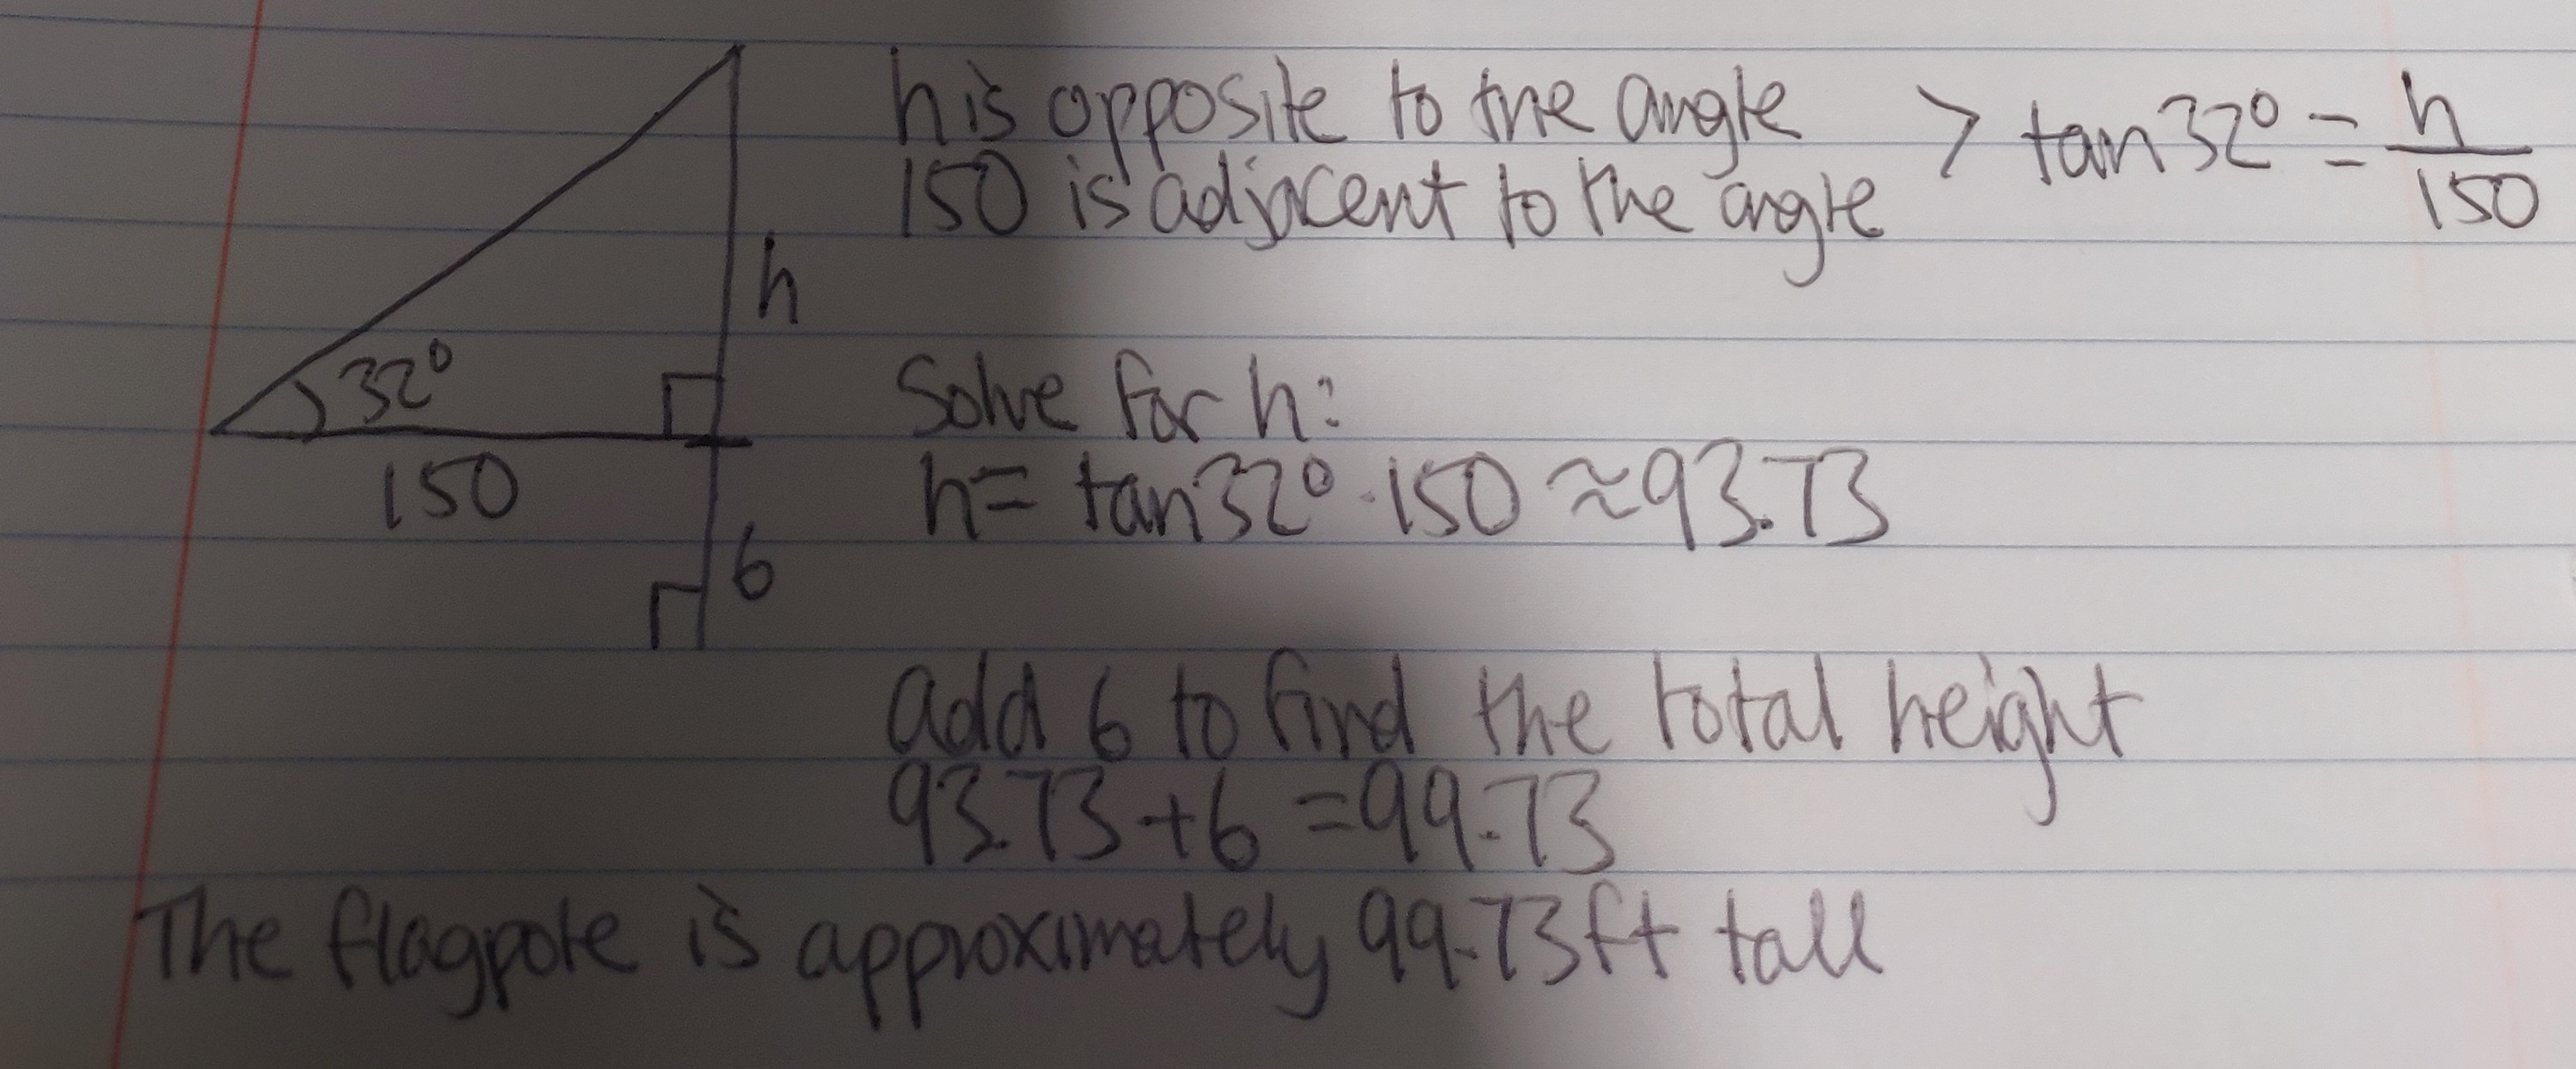 h is opposite to the angle > tan 32° = h/150
150 is adjacent to the angle
h
32°
150
6
Solve for h:
h = tan 32° · 150 ≈ 93.73
add 6 to find the total height
93.73 + 6 = 99.73
The flagpole is approximately 99.73 ft tall